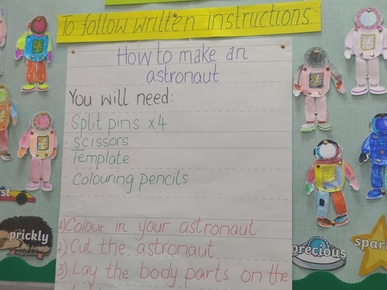 To follow written instructions
How to make an
astronaut
You will need:
Split pins x4
Scissors
Template
Colouring pencils
1) Colour in your astronaut
2) Cut the astronaut
3) Lay the body parts on the
prickly
precious